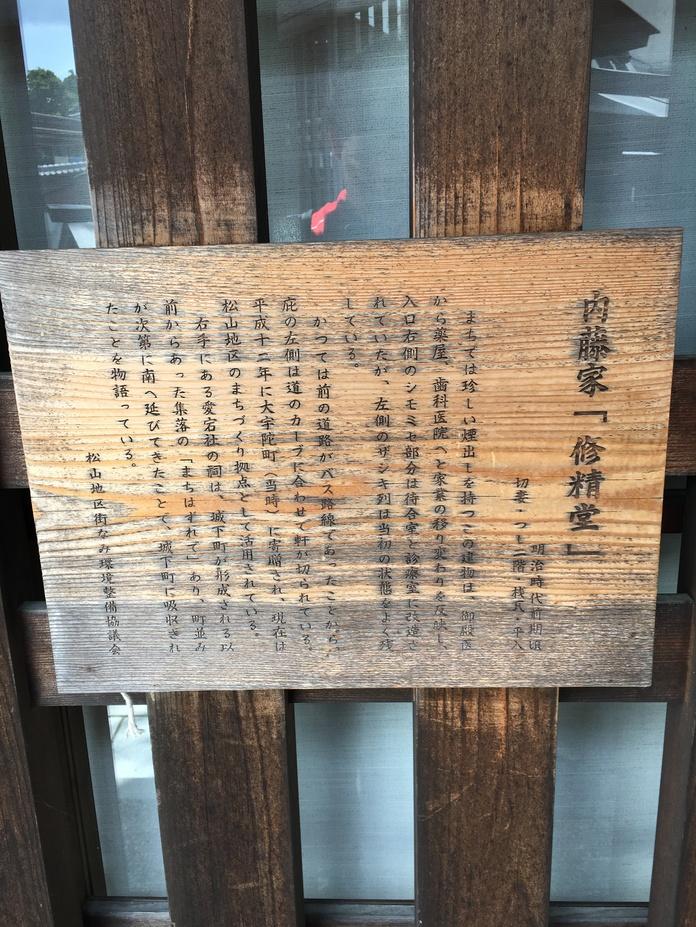 内藤家「修精堂」
明治時代前期頃
切妻・つし二階・桟瓦・平入
まちでは珍しい煙出しを持つこの建物は、御殿医
から薬屋、歯科医院へと家業の移り変わりを反映し、
入口右側のシモミセ部分は待合室と診療室に改造さ
れていたが、左側のザシキ列は当初の状態をよく残
している。
かつては前の道路がバス路線であったことから、
庇の左側は道のカーブに合わせて軒が切られている。
平成十二年に大宇陀町（当時）に寄贈され、現在は
松山地区のまちづくり拠点として活用されている。
右手にある愛宕社の祠は、城下町が形成される以
前からあった集落の「まちはずれ」であり、町並み
が次第に南へ延びてきたことで、城下町に吸収され
たことを物語っている。
松山地区街なみ環境整備協議会